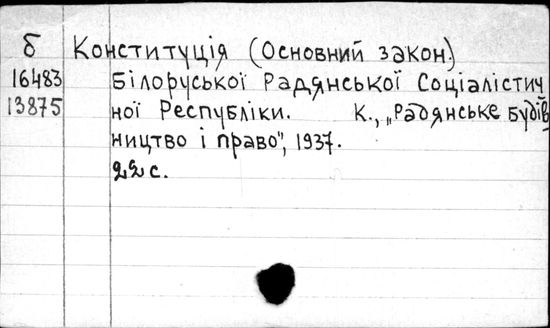 б Конституція (Основний закон)
16483 Білоруської Радянської Соціалістич
13875 ної Республіки. К., „Радянське будів
ництво і право", 1937.
22 с.